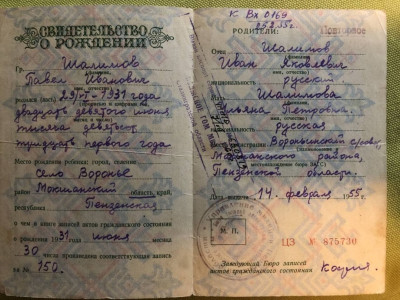 СВИДЕТЕЛЬСТВО
О РОЖДЕНИИ
Гр. Шалимов
Павел Иванович
родился (лась) 29/VI-1931 года
двадцать девятого июня
тысяча девятьсот
тридцать первого года
Место рождения ребенка: город, селение
село Воронье
Мокшанский область, край,
республика Пензенская
о чем в книге записей актов гражданского состояния
о рождении 1931 года июня месяца
30 числа произведена соответствующая запись
за № 150.
к Вх 0169
25.2.55г.
РОДИТЕЛИ: Повторное
Отец Шалимов
Иван Яковлевич
национальность русский.
Мать Шалимова
Ульяна Петровна
национальность русская
Мокшанского района,
Пензенской области.
Дата выдачи 14 февраля 1955 г.
М. П.
ЦЗ № 875730
Заведующий Бюро записей
актов гражданского состояния